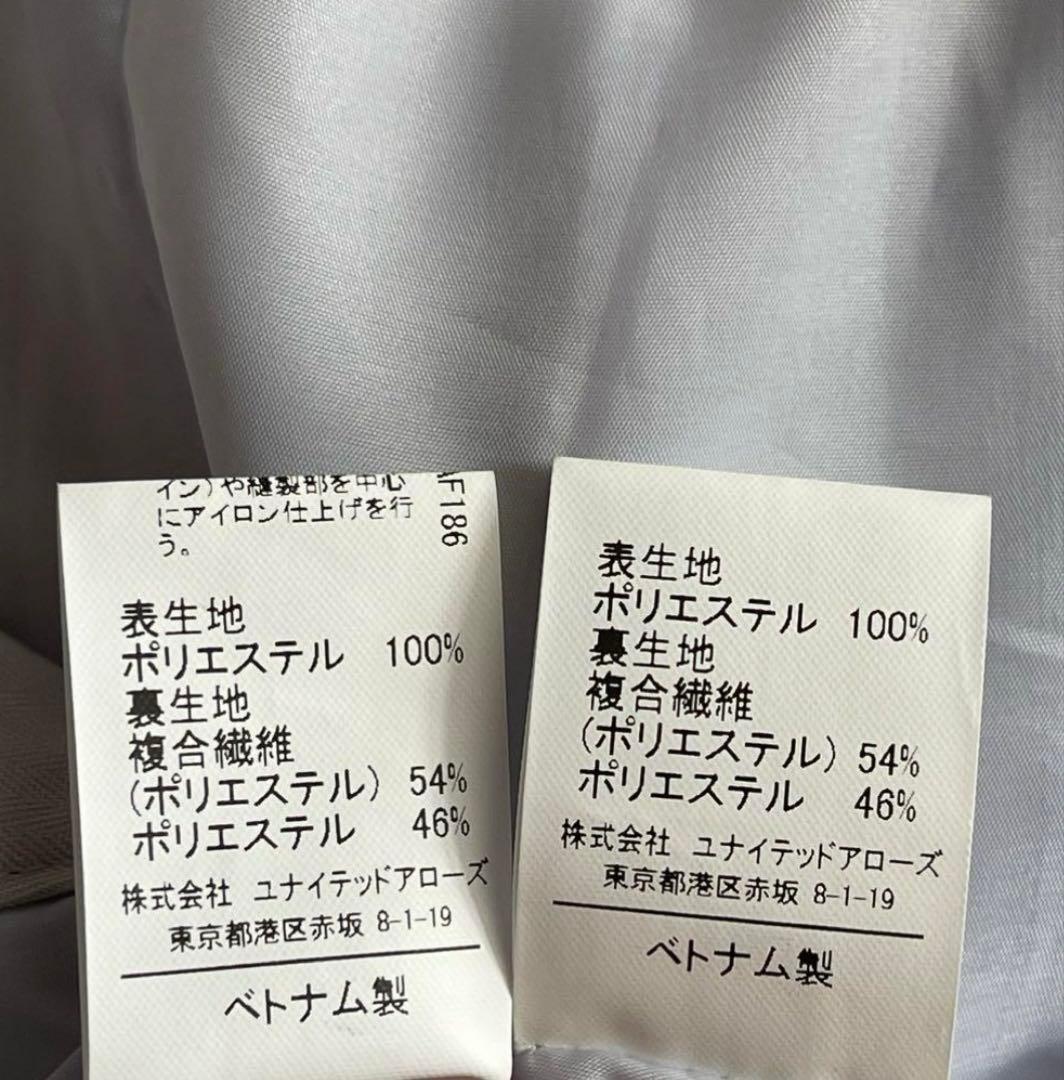 イン)や縫製部を中心
にアイロン仕上げを行
う。
AF186
表生地
ポリエステル 100%
裏生地
複合繊維
(ポリエステル) 54%
ポリエステル 46%
株式会社 ユナイテッドアローズ
東京都港区赤坂 8-1-19
ベトナム製
表生地
ポリエステル 100%
裏生地
複合繊維
(ポリエステル) 54%
ポリエステル 46%
株式会社 ユナイテッドアローズ
東京都港区赤坂 8-1-19
ベトナム製